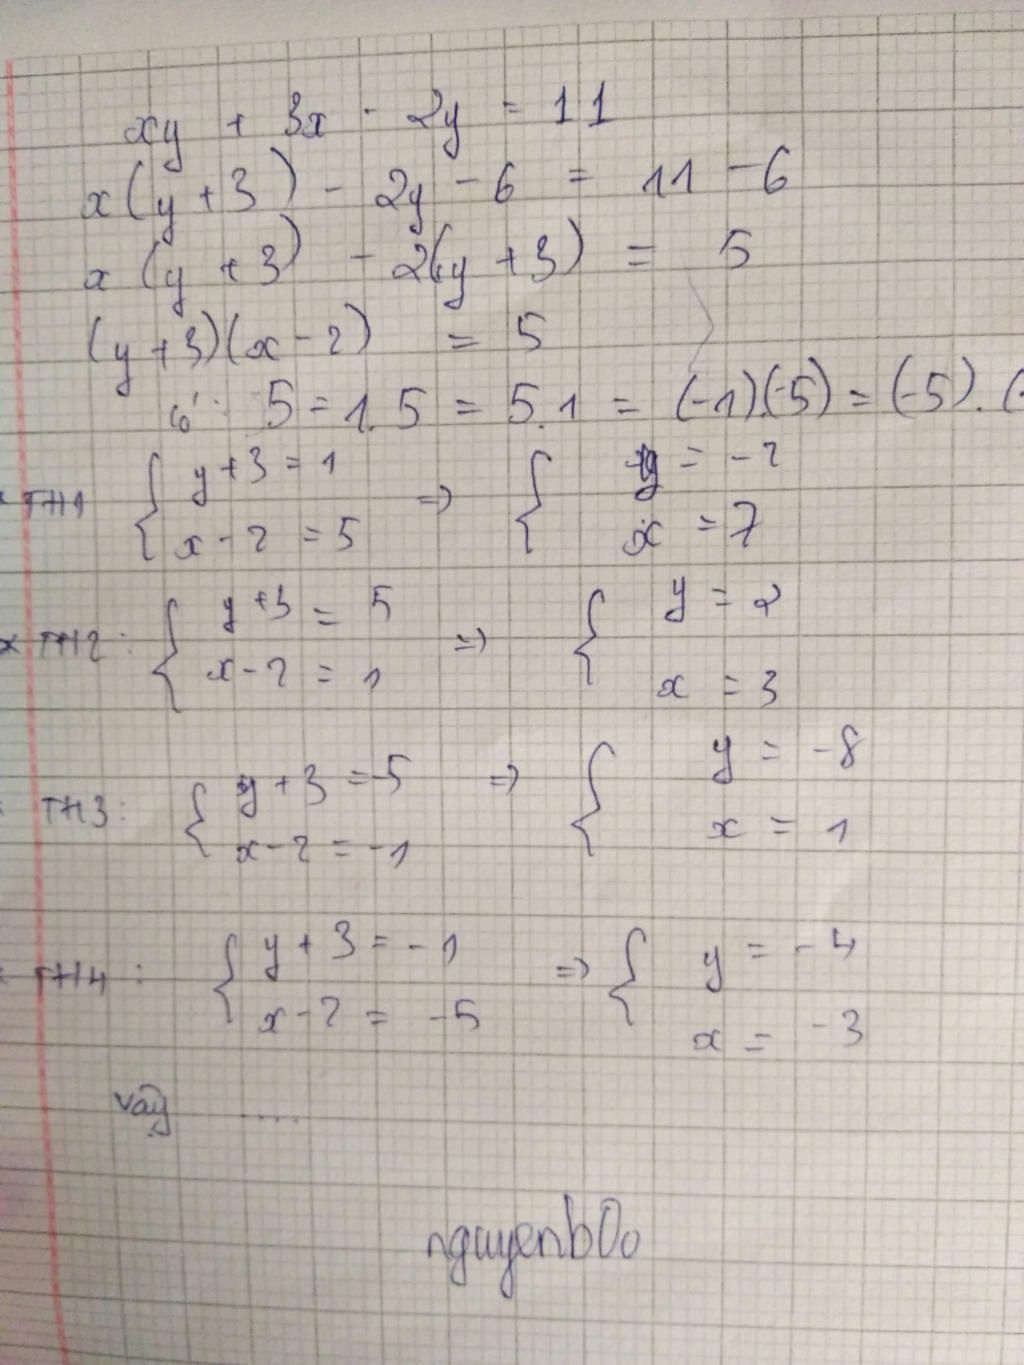 xy + 3x - 2y = 11
x(y+3) - 2y - 6 = 11 - 6
x(y+3) - 2(y+3) = 5
(y+3)(x-2) = 5
: 5 = 1.5 = 5.1 = (-1).(-5) = (-5).(-
TH1 { y+3 = 1 => { y = -2
x-2 = 5 x = 7
* TH2: { y+3 = 5 => { y = 2
x-2 = 1 x = 3
TH3: { y+3 = -5 => { y = -8
x-2 = -1 x = 1
TH4: { y+3 = -1 => { y = -4
x-2 = -5 x = -3
vậy ....
nguyenb0o